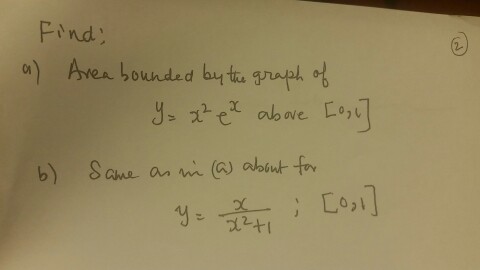 Find:
②
a) Area bounded by the graph of
y = x² eˣ above [0,1]
b) Same as in (a) about for
y = x/(x²+1) ; [0,1]